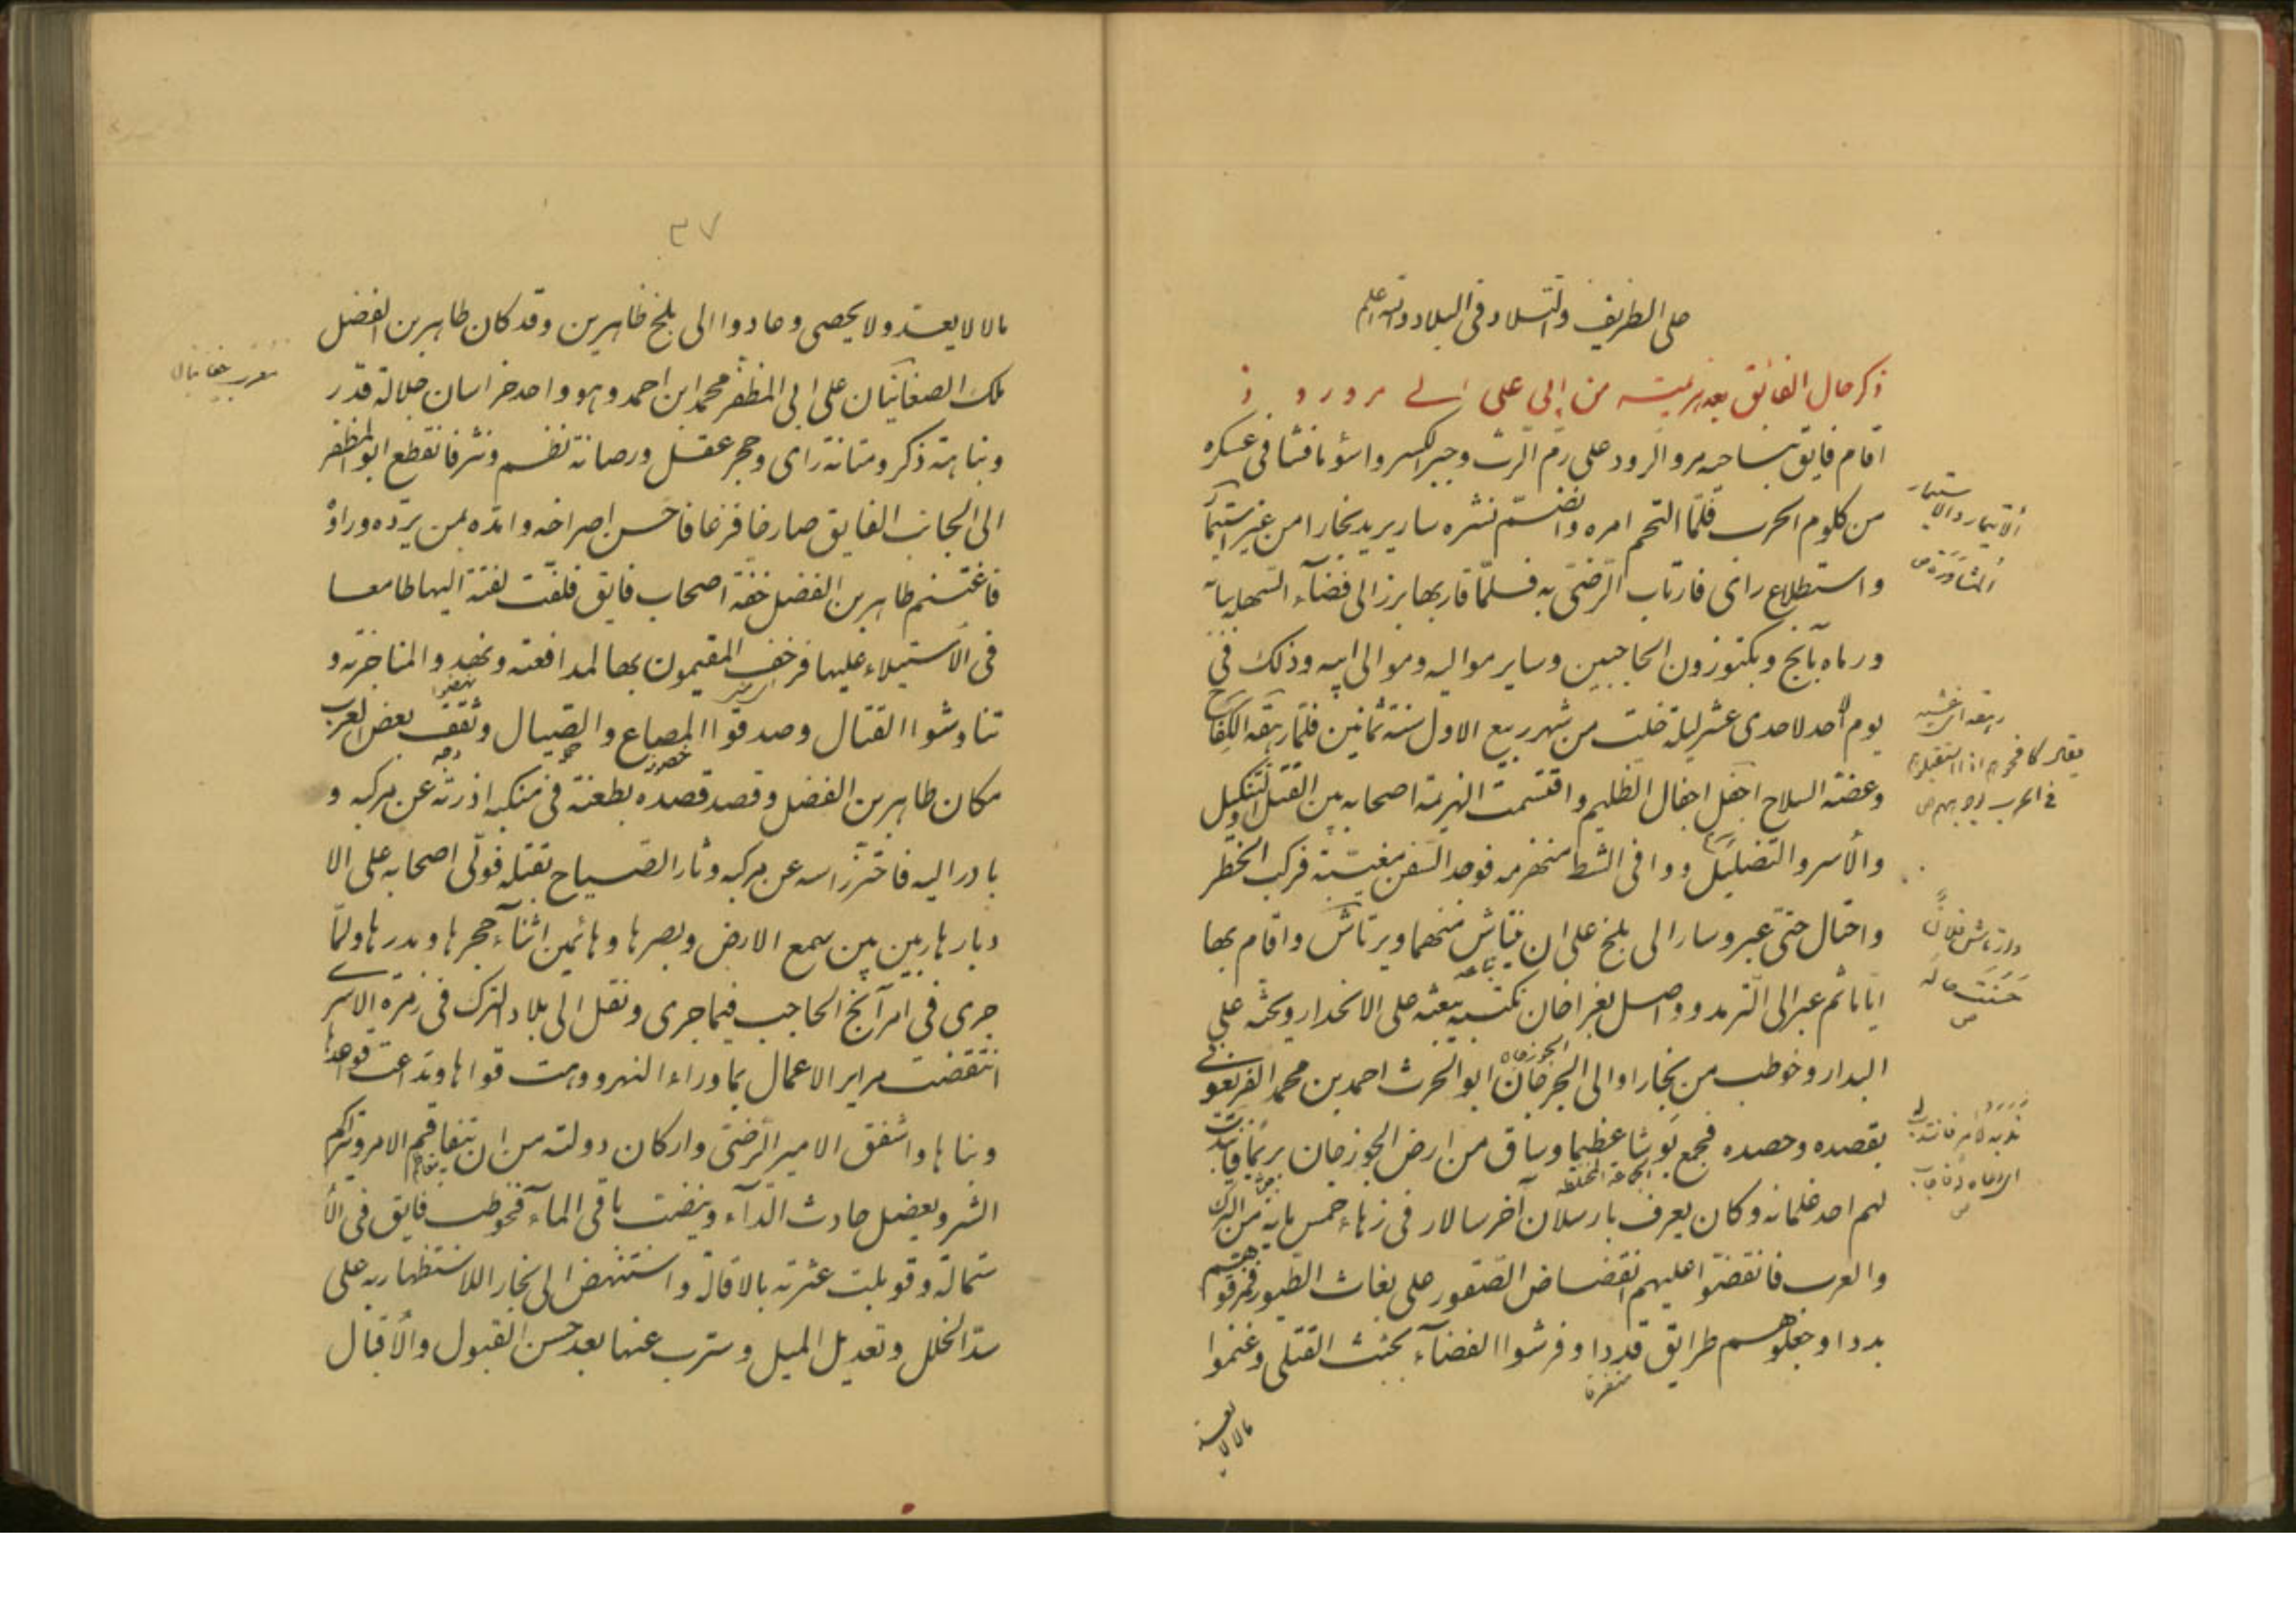 على الطريف والتلاد فى البلاد والله اعلم
ذكر حال الفائق بعد هزيمته من ابى على الى مرورود
اقام فايق بناحية مرو الرود على رم الرث وجبر الكسر واسو ما فشا فى عسكره
من كلوم الحرب فلما التحم امره وانضم نشره سار يريد بخارا من غير استيمار
واستطلاع راى فارتاب الرضى به فلما قاربها برز الى فضاء السهلة بباه
ورماه بآنج وبكتوزون الحاجبين وساير مواليه وموالى ابيه وذلك فى
يوم الاحد لاحدى عشر ليلة خلت من شهر ربيع الاول سنة ثمانين فلما رهقه الكفاح
وعضته السلاح اجفل اجفال الظليم واقتسمت الهزيمة اصحابه بين القتل والتنكيل
والأسر والتضليل ووافى الشط منهزمه فوجد السفن مغيبة فركب الخطر
واحتال حتى عبر وسار الى بلخ على ان ينتاش منهما ويرتاش واقام بها
اياما ثم عبر الى الترمد وواصل بغراخان بكتبه يبعثه على الانحدار ويحثه على
البدار وخوطب من بخارا والى الجرجان ابو الحرث احمد بن محمد الفريغونى
الجوزجان
بقصده وحصده فجمع بوشا عظيما وساق من ارض الجوزجان يريد فايقا فندب
لهم احد غلمانه وكان يعرف بارسلان آخر سالار فى زهاء خمس مايه من الترك
والعرب فانقضوا عليهم انقضاض الصقور على بغاث الطيور فمزقوهم
بددا وجعلوهم طرايق قددا وفرشوا الفضاء بجثث القتلى وغنموا
متفرقة
مالا لا يعد
الأيتمار والاستيمار
المشاورة ص
رهقه اى غشيه
يقال كافحوهم اذا استقبلوهم
فى الحرب بوجوههم ص
وارتاش فلان
حسنت حاله
ص
ندبه لامر فانتدب له
اى دعاه له فاجاب
ص
٣٧
مالا لا يعد ولا يحصى وعادوا الى بلخ ظاهرين وقد كان طاهر بن الفضل
ملك الصغانيان على ابى المظفر محمد ابن احمد وهو واحد خراسان جلالة قدر
ونباهة ذكر ومتانة راى وحجر عقل ورصانة نظم ونثر فانقطع ابو المظفر
الى الجانب الفايق صارخا فزعا فاحسن اصراخه وامده بمن يرده وراؤ
فاغتنم طاهر بن الفضل خفة اصحاب فايق فلفت لفتة اليها طامعا
فى الأستيلاء عليها فزحف المقيمون بها لمدافعته ونهدوا لمناجزته و
تناوشوا القتال وصدقوا المصاع والصيال وثقف بعض العرب
مكان طاهر بن الفضل وقصد قصده بطعنة فى منكبه اذرته عن مركبه و
بادر اليه فاحتز راسه عن مركبه وثار الصياح بقتله فولى اصحابه على الا
دبار هاربين بين سمع الارض وبصرها وهائمين اثناء حجرها ومدرها ولما
جرى فى امر آنج الحاجب فيما جرى ونقل الى بلاد الترك فى زمرة الاسرى
انتقضت مراير الاعمال بماوراء النهر ووهت قواها وتداعت قواعدها
وبناها واشفق الامير الرضى واركان دولته من ان يتفاقم الامر ويتراكم
الشر ويعضل حادث الداء وينضت باقى الماء فخوطب فايق فى الأ
ستمالة وقوبلت عثرته بالاقالة واستنهض الى بخارا للاستظهار به على
سد الخلل وتعديل الميل وسرب عنها بعد حسن القبول والأقبال